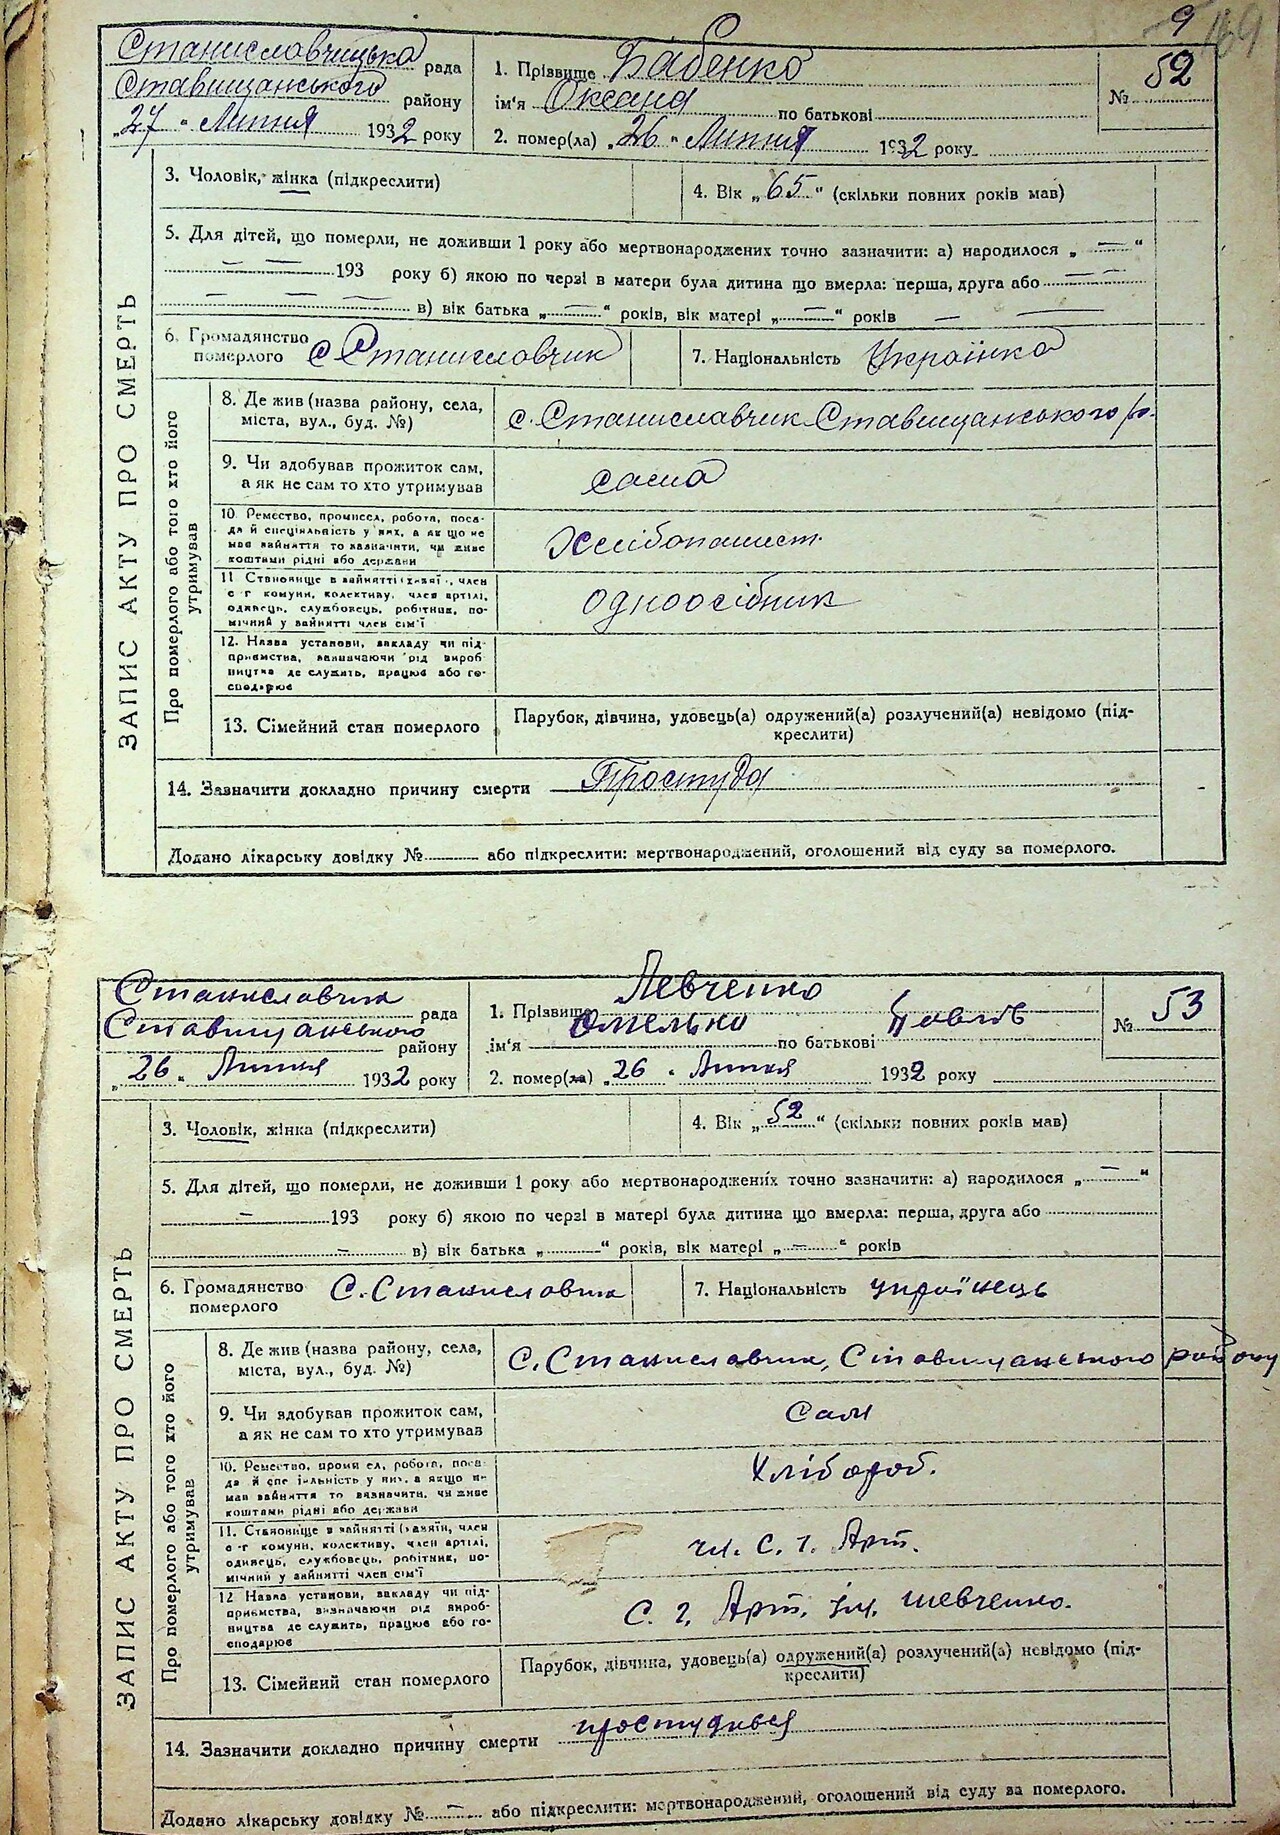 9
169
Станиславчицька рада
Ставищанського району
„27“ Липня 1932 року
1. Прізвище Бабенко
ім'я Оксана по батькові
2. помер(ла) „26“ Липня 1932 року
№ 52
ЗАПИС АКТУ ПРО СМЕРТЬ
3. Чоловік, жінка (підкреслити)
4. Вік „65“ (скільки повних років мав)
5. Для дітей, що померли, не доживши 1 року або мертвонароджених точно зазначити: а) народилося „—“
— — 193 року б) якою по черзі в матери була дитина що вмерла: перша, друга або — —
— — — в) вік батька „—“ років, вік матері „—“ років — —
6. Громадянство померлого с Станиславчик
7. Національність Українка
Про померлого або того хто його утримував
8. Де жив (назва району, села,
міста, вул., буд. №)
с. Станиславчик Ставищанського р.
9. Чи здобував прожиток сам,
а як не сам то хто утримував
сама
10. Ремество, промисел, робота, поса-
да й спеціяльність у них, а як що не
мав зайняття то зазначити, чи живе
коштами рідні або держави
Хлібопашест.
11 Становище в зайнятті (хазяї, член
с-г комуни, колективу, член артілі,
одинець, службовець, робітник, по-
мічний у зайнятті член сім'ї
одноосібник
12. Назва установи, закладу чи під-
приємства, зазначаючи рід вироб
ництва де служить, працює або го-
сподарює
13. Сімейний стан померлого
Парубок, дівчина, удовець(а) одружений(а) розлучений(а) невідомо (під-
креслити)
14. Зазначити докладно причину смерти Простуда
Додано лікарську довідку № або підкреслити: мертвонароджений, оголошений від суду за померлого.
Станиславчик рада
Ставищанського району
„26“ Липня 1932 року
1. Прізвище Левченко
ім'я Омелько по батькові Павлів
2. помер(ла) „26“ Липня 1932 року
№ 53
ЗАПИС АКТУ ПРО СМЕРТЬ
3. Чоловік, жінка (підкреслити)
4. Вік „52“ (скільки повних років мав)
5. Для дітей, що померли, не доживши 1 року або мертвонароджених точно зазначити: а) народилося „—“
— 193 року б) якою по черзі в матері була дитина що вмерла: перша, друга або
— в) вік батька „“ років, вік матері „—“ років
6. Громадянство померлого С. Станиславчик
7. Національність українець
Про померлого або того хто його утримував
8. Де жив (назва району, села,
міста, вул., буд. №)
С. Станиславчик, Ставищанського району
9. Чи здобував прожиток сам,
а як не сам то хто утримував
Сам
10. Ремество, проми ел, робота, поса-
да й спе іяльність у них, а якщо н-
мав зайняття то зазначити, чи живе
коштами рідні або держави
Хлібороб.
11. Становище в зайнятті (хазяїн, член
с-г комуни, колективу, член артілі,
одинець, службовець, робітник, по-
мічний у зайнятті член сім'ї
чл. С. г. Арт.
12 Назва установи, закладу чи під-
приємства, визначаючи рід вироб-
ництва де служить, працює або го-
сподарює
С. г. Арт. ім. Шевченко.
13. Сімейний стан померлого
Парубок, дівчина, удовець(а) одружений(а) розлучений(а) невідомо (під-
креслити)
14. Зазначити докладно причину смерти простудився
Додано лікарську довідку № — або підкреслити: мертвонароджений, оголошений від суду за померлого.